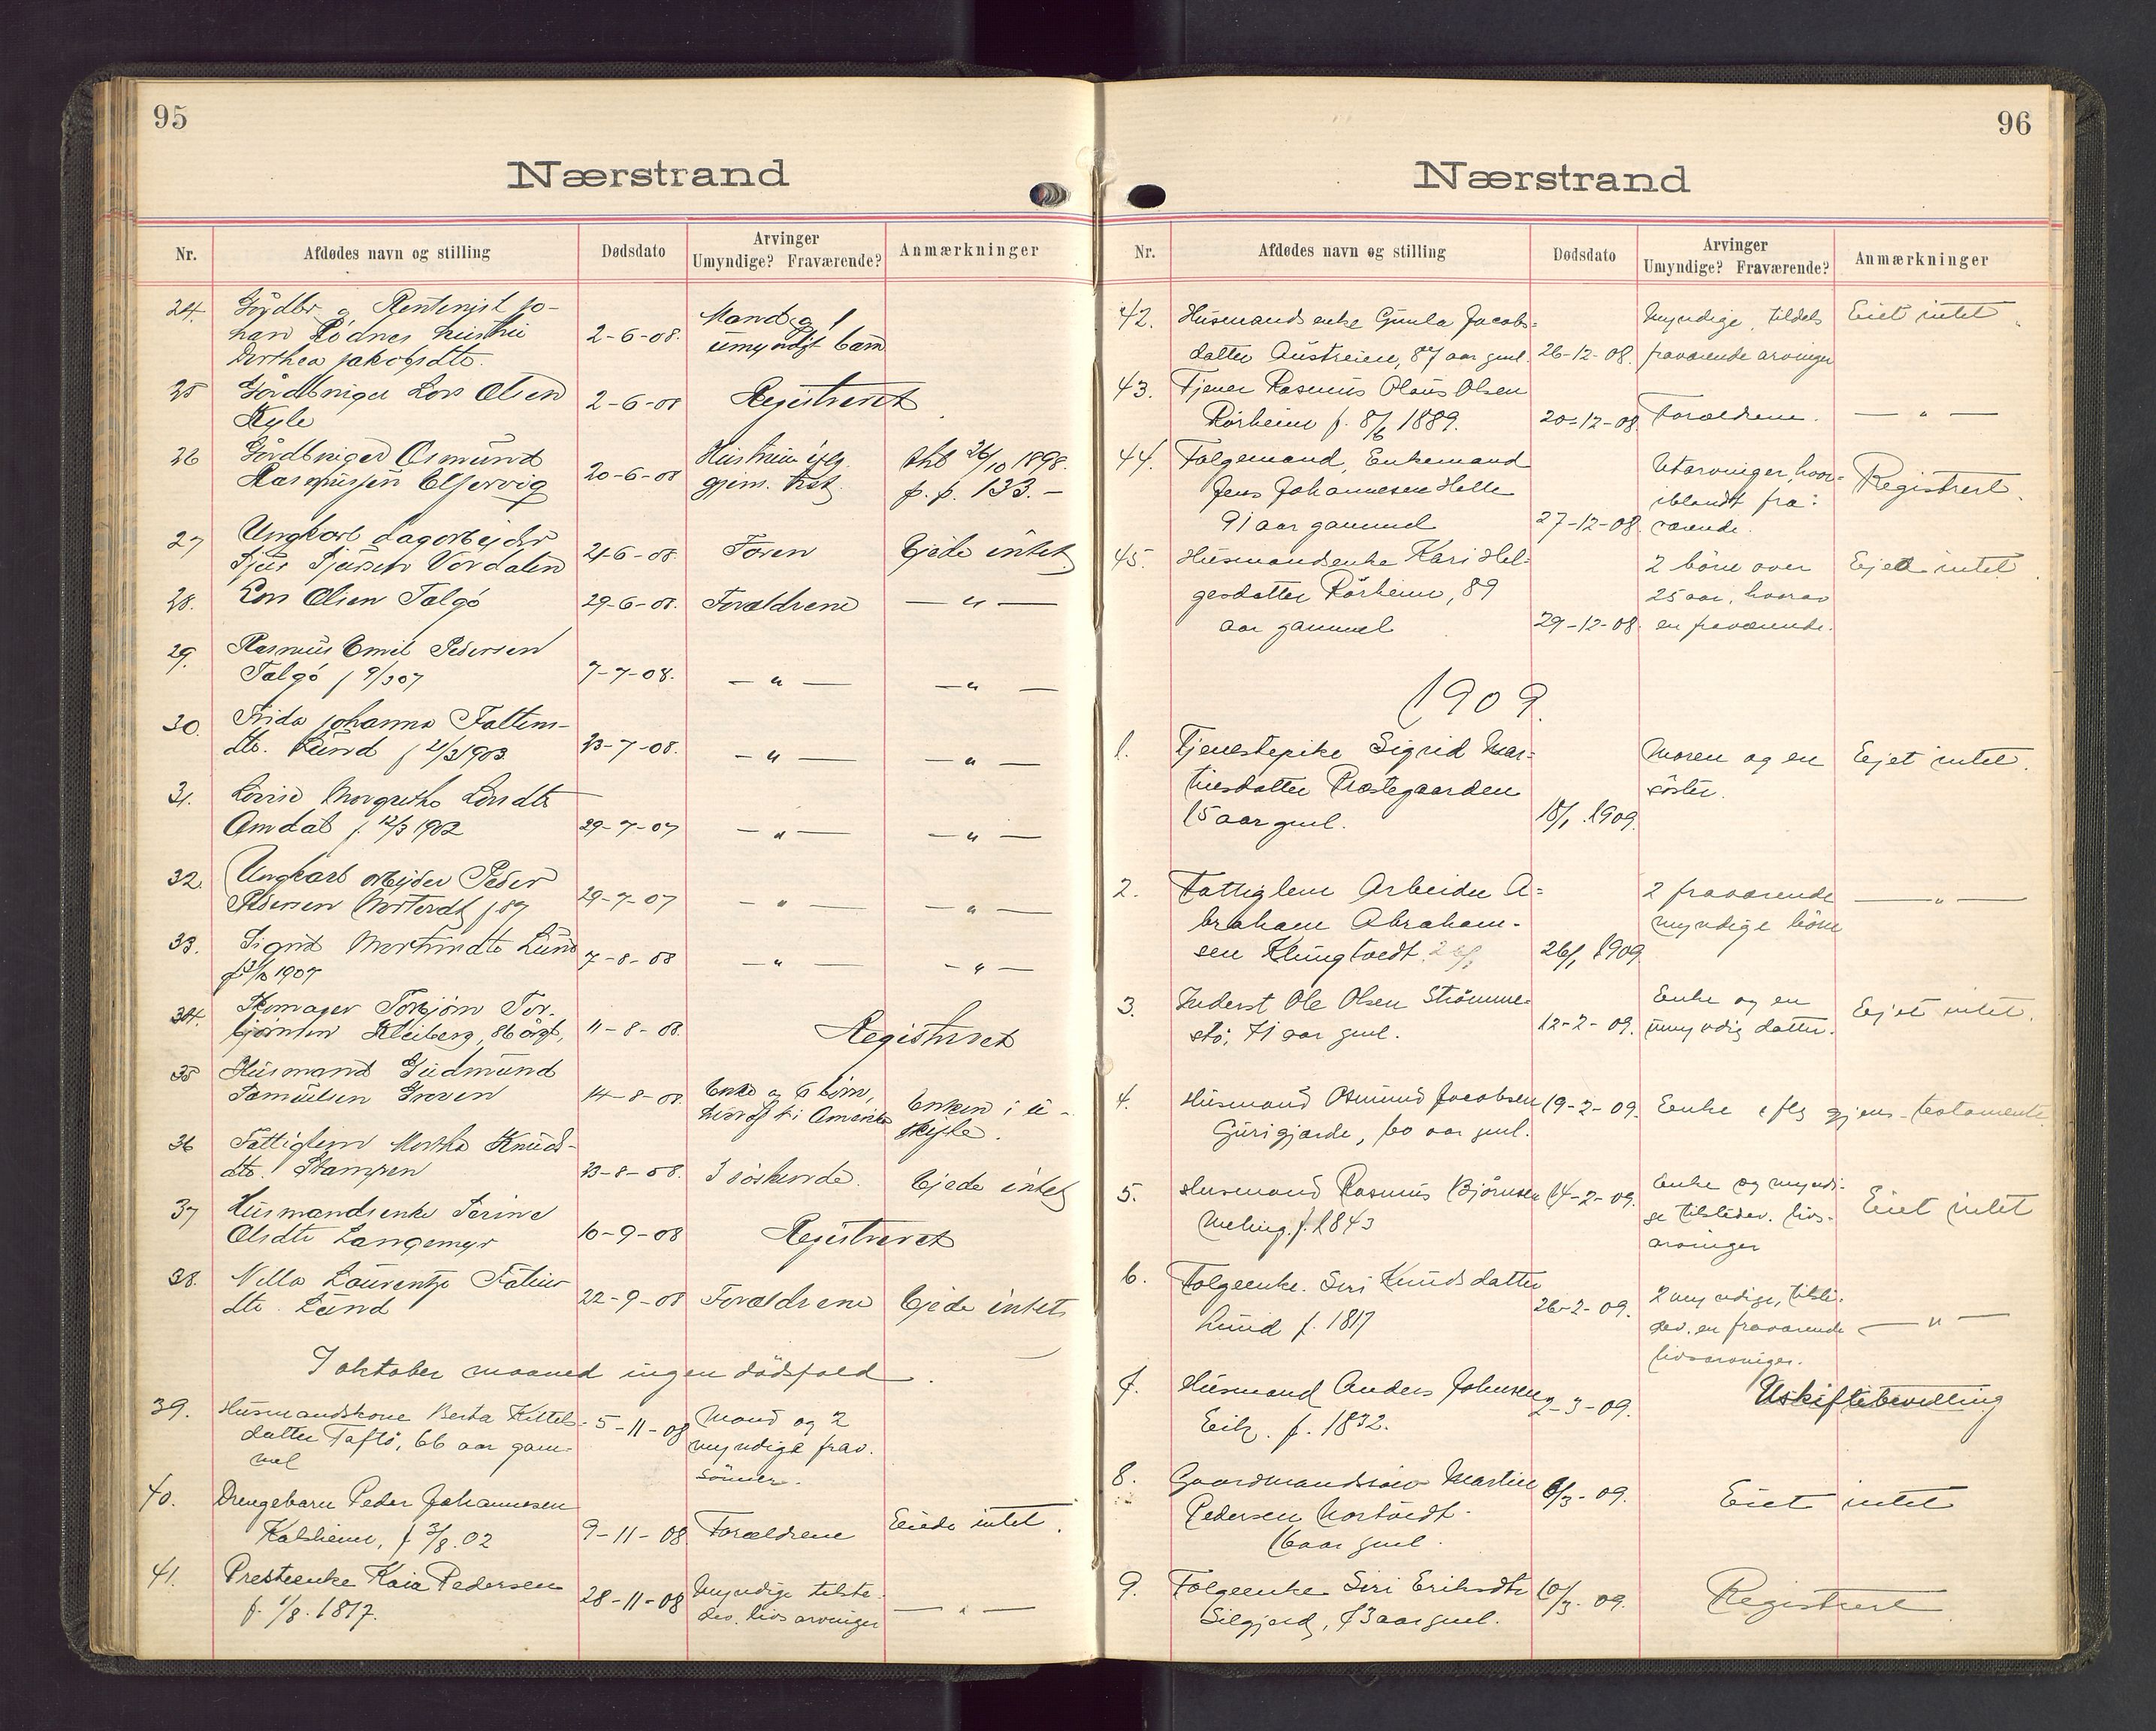 95
Nærstrand
Nr. Afdødes navn og stilling Dødsdato Arvinger Umyndige? Fraværende? Anmærkninger
24. Gårdbr. og Rentenist Jo-
han Rödnes hustru 2-6-08. Mand og 1
Dorthea Jakobsdtr. umyndigt barn
25 Gårdbruger Lars Olsen 2-6-08 Registreret
Kyle
26 Gårdbruger Osmund 20-6-08 Hustruen iflg. thl 26/10 1898.
Rasmussen gjens. test. p. p. 133.-
27 Ungkarl dagarbejder
Sjur Sjursen Vordalen 21-6-08. Faren Ejede intet
28. Lars Olsen Talgö 29-6-08. Forældrene — " —
29. Rasmus Emil Pedersen
Talgö f 9/3 07 7-7-08. — " — — " —
30. Frida Johanna
dtr. Lund f 21/3 1903 23-7-08. — " — — " —
31. Lovise Margrethe Larsdtr
Amdal f. 12/3 1902 29-7-07 — " — — " —
32. Ungkarl arbejder Peder
Pedersen Nortvedt f 87 29-7-07 — " — — " —
33. Sigrid Martinsdtr Lund
1907 7-8-08 — " — — " —
34. Skomager Torbjörn Tor-
björnsen Kleiberg, 86 årgl, 11-8-08. Registreret
35 Husmand Gudmund
Samuelsen Groven 14-8-08. Enke og 6 börn, Enken i u-
hvoraf i Amerika skifte.
36 Fattiglem Martha Knuds-
dtr. Stampen 23-8-08. 3 söskende. Ejede intet
37 Husmandsenke Serine
Olsdtr Langemyr 10-9-08 Registreret
38. Nella Laurentze
dtr. Lund 22-9-08 Forældrene Ejede intet
I oktober maaned ingen dödsfald.
39. Husmandskone Berta Kittels- 5-11-08 Mand og 2
datter Taftö, 66 aar gam- myndige frav.
mel sönner.
40. Drengebarn Peder Johannesen
Kalsheim, f 3/8. 02 9-11-08. Forældrene Eiede intet.
41. Presteenke Kaia Pedersen
f. 1/8. 1817. 28-11-08 Myndige tilste-
dev. livsarvinger — " —
96
Nærstrand
Nr. Afdødes navn og stilling Dødsdato Arvinger Umyndige? Fraværende? Anmærkninger
42. Husmandsenke Gunla Jacobs= Myndige, tildels Eiet intet.
datter Austreim, 87 aar gml. 26-12-08. fraværende arvinger
43. Tjener Rasmus Olaus Olsen
Rörheim f. 8/6 1889. 20-12-08. Forældrene. — " —
44. Folgemand, Enkemand Utarvinger, hvor= Registrert.
Jens Johannesen Helle iblandt fra=
91 aar gammel 27-12-08. værende.
45. Husmandsenke Kari Hel= 2 börn over Ejet intet.
gesdatter Rörheim, 89 25 aar, hvorav
aar gammel 29-12-08. en fraværende.
1909.
1. Tjenestepike Sigrid Mar= Moren og en Ejet intet.
tinsdatter Prestegaarden söster.
15 aar gml. 18/1 1909.
2. Fattiglem Arbeider A= 2 fraværende — " —
braham Abraham- myndige börn
sen Klungtvedt 26/1 26/1 1909
3. Inderst Ole Olsen Strömme- Enke og en Ejet intet.
stö, 71 aar gml. 12-2-09. umyndig datter.
4. Husmand Osmund Jacobsen 19-2-09. Enke iflg gjens. testamente
Gurigjerde, 60 aar gml.
5. Husmand Rasmus Björnsen 14-2-09. Enke og myndi- Eiet intet
Meling f. 1843 ge tilstedev. livs-
arvinger
6. Folgeenke. Siri Knudsdatter 26-2-09. 2 myndige, tilste-
Lund f. 1817 dev. en fraværende — " —
livsarvinger.
7. Husmand Anders Johnsen 2-3-09. Uskiftebevilling
Eik. f. 1832.
8. Gaardmandssön Martin 6/3-09. Eiet intet
Pedersen Nortvedt.
16 aar gml.
9. Folgeenke Siri Eriksdtr 10/3. 09. Registrert
Selgjerd, 73 aar gml.